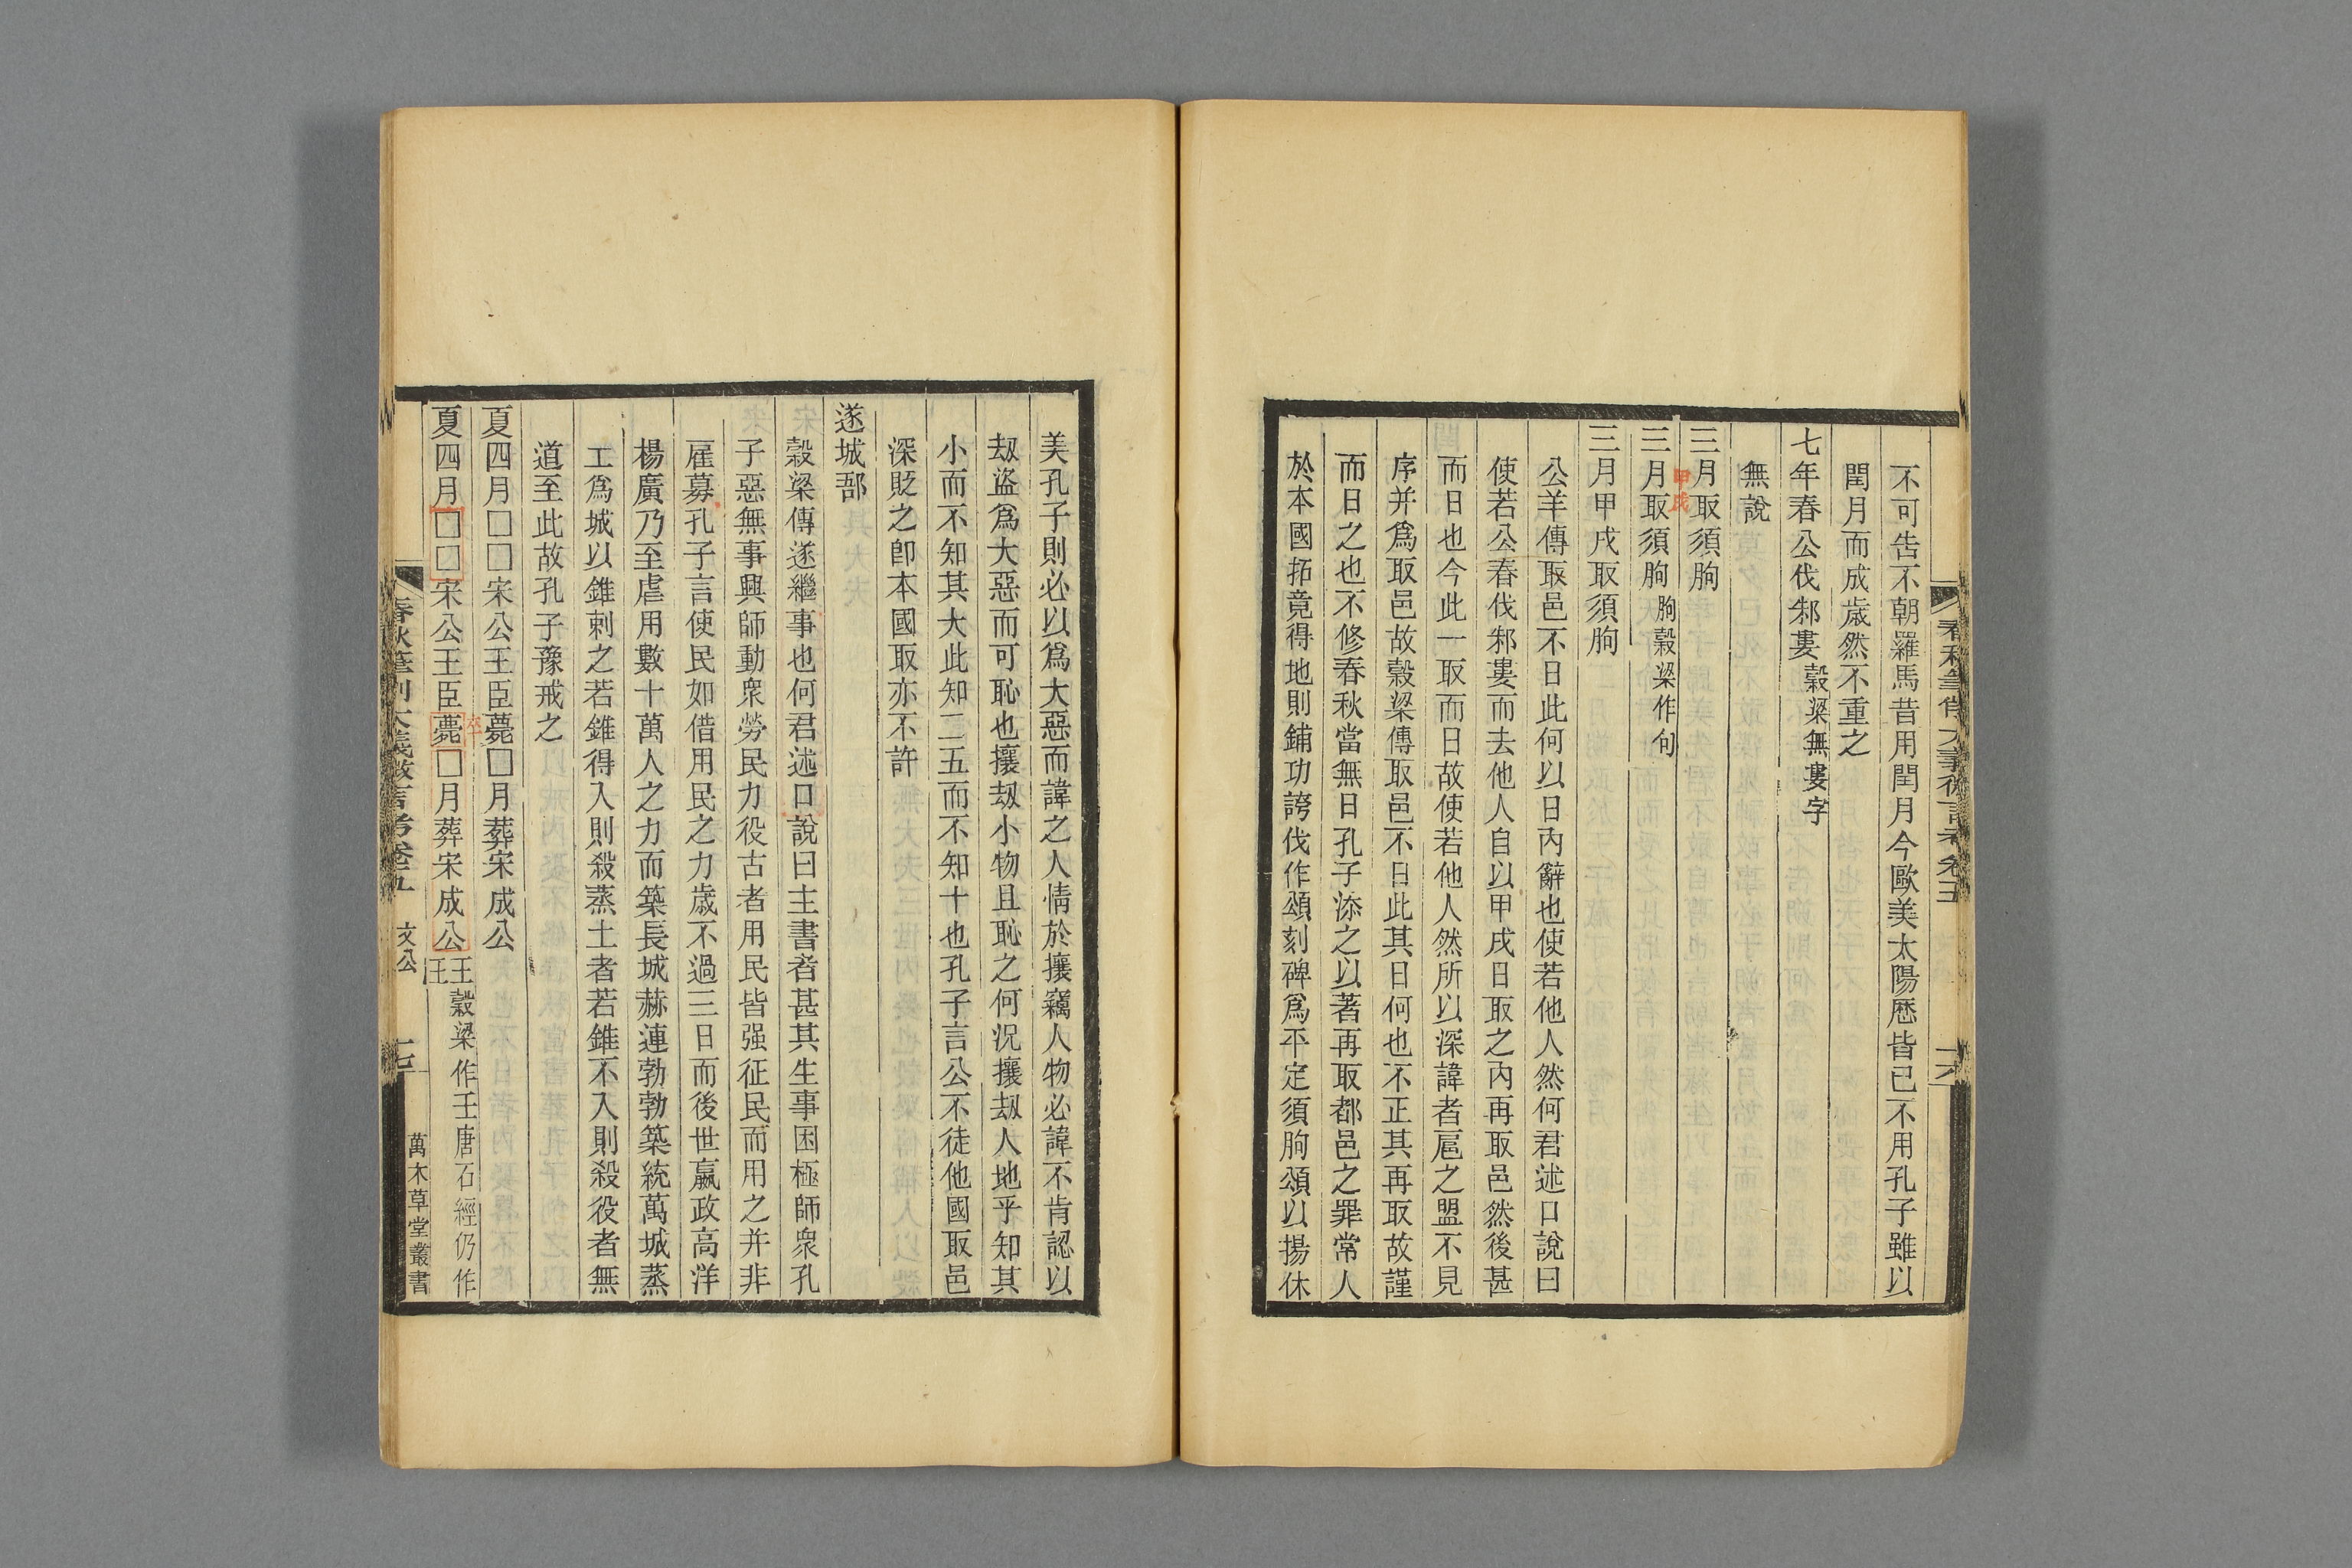 不可告不朝羅馬昔用閏月今歐美太陽歷皆已不用孔子雖以
閏月而成歲然不重之
七年春公伐邾婁穀梁無婁字
無說
三月取須朐
甲戌
三月取須朐朐穀梁作句
三月甲戌取須朐
公羊傳取邑不日此何以日內辭也使若他人然何君述口說曰
使若公春伐邾婁而去他人自以甲戌日取之內再取邑然後甚
而日也今此一取而日故使若他人然所以深諱者扈之盟不見
序并爲取邑故穀梁傳取邑不日此其日何也不正其再取故謹
而日之也不修春秋當無日孔子添之以著再取都邑之罪常人
於本國拓竟得地則鋪功誇伐作頌刻碑爲平定須朐頌以揚休
美孔子則必以爲大惡而諱之人情於攘竊人物必諱不肯認以
刼盜爲大惡而可恥也攘刼小物且恥之何況攘刼人地乎知其
小而不知其大此知二五而不知十也孔子言公不徒他國取邑
深貶之卽本國取亦不許
遂城郚
穀梁傳遂繼事也何君述口說曰主書者甚其生事困極師衆孔
子惡無事興師動衆勞民力役古者用民皆强征民而用之并非
雇募孔子言使民如借用民之力歲不過三日而後世嬴政高洋
楊廣乃至虐用數十萬人之力而築長城赫連勃勃築統萬城蒸
工爲城以錐刺之若錐得入則殺蒸土者若錐不入則殺役者無
道至此故孔子豫戒之
夏四月□□宋公王臣薨□月葬宋成公
卒
夏四月□□宋公王臣薨□月葬宋成公王穀梁作壬唐石經仍作王
春秋筆削大義微言考卷五 文公 十七 萬木草堂叢書